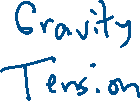 Gravity
Tension